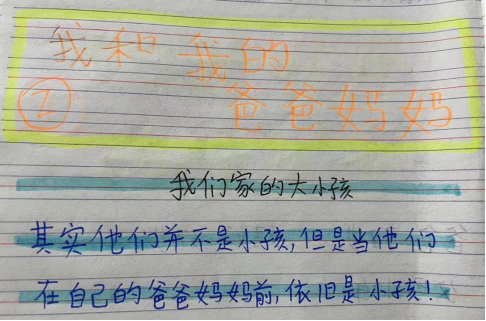 我和我的
② 爸爸妈妈
我们家的大小孩
其实他们并不是小孩,但是当他们
在自己的爸爸妈妈前,依旧是小孩!